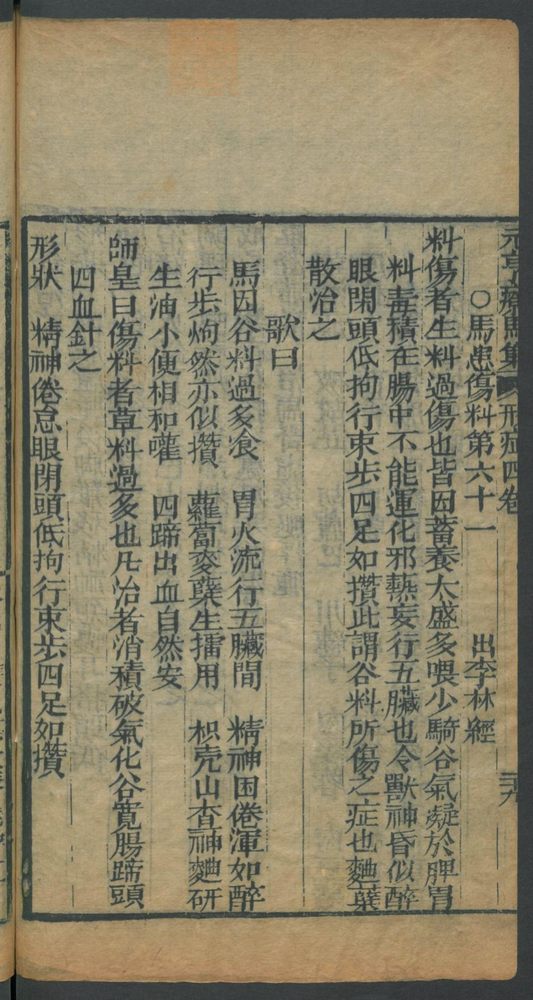 元亨療馬集 形症四卷
○馬患傷料第六十一 出李林經
料傷者生料過傷也皆因蓄養太盛多喂少騎谷氣凝於脾胃
料毒積在腸中不能運化邪熱妄行五臟也令獸神昏似醉
眼閉頭低拘行束步四足如攢此謂谷料所傷之症也麯蘗
散治之
歌曰
馬因谷料過多飡 胃火流行五臟間 精神困倦渾如醉
行步恂然亦似攢 蘿蔔麥蘗生擂用 枳壳山查神麯研
生油小便相和嚾 四蹄出血自然安
師皇曰傷料者草料過多也凡治者消積破氣化谷寬腸蹄頭
四血針之
形狀 精神倦怠眼閉頭低拘行束步四足如攢